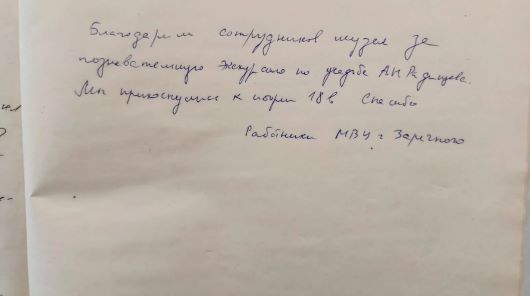 Благодарим сотрудников музея за
познавательную экскурсию по усадьбе А.Н. Радищева.
Мы прикоснулись к истории 18 в. Спасибо
Работники МВЧ г. Заречного